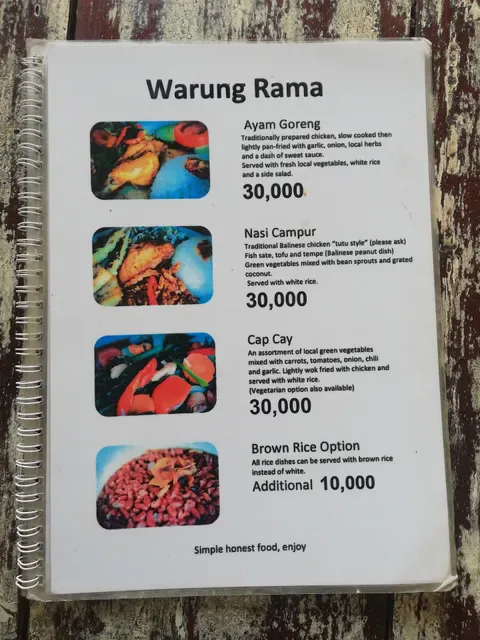 Warung Rama
Ayam Goreng
Traditionally prepared chicken, slow cooked then
lightly pan-fried with garlic, onion, local herbs
and a dash of sweet sauce.
Served with fresh local vegetables, white rice
and a side salad.
30,000
Nasi Campur
Traditional Balinese chicken "tutu style" (please ask)
Fish sate, tofu and tempe (Balinese peanut dish)
Green vegetables mixed with bean sprouts and grated
coconut.
Served with white rice.
30,000
Cap Cay
An assortment of local green vegetables
mixed with carrots, tomatoes, onion, chili
and garlic. Lightly wok fried with chicken and
served with white rice.
(Vegetarian option also available)
30,000
Brown Rice Option
All rice dishes can be served with brown rice
instead of white.
Additional 10,000
Simple honest food, enjoy